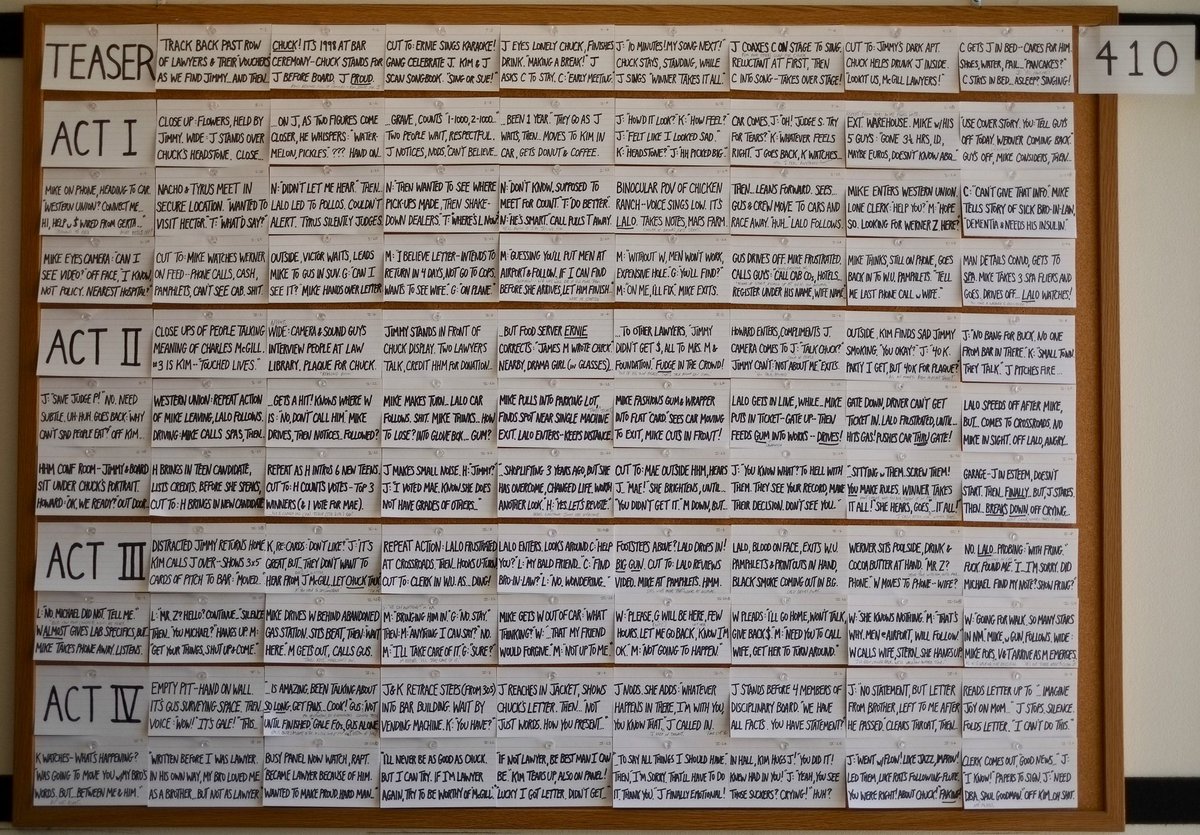 410
TEASER
"TRACK BACK PAST ROW
OF LAWYERS & THEIR VOUCHERS
AS WE FIND JIMMY... AND THEN..
CHUCK! IT'S 1998 AT BAR
CEREMONY- CHUCK STANDS FOR
J BEFORE BOARD. J PROUD.
CUT TO: ERNIE SINGS KARAOKE!
GANG CELEBRATE J. KIM & J
SCAN SONGBOOK. "SING OR SUE!"
J EYES LONELY CHUCK, FINISHES
DRINK. "MAKING A BREAK!" J
ASKS C TO STAY. C: "EARLY MEETING.
J: "10 MINUTES! MY SONG NEXT!"
CHUCK STAYS, STANDING, WHILE
J SINGS "WINNER TAKES IT ALL."
J COAXES C ON STAGE TO SING,
RELUCTANT AT FIRST, THEN
C INTO SONG-TAKES OVER STAGE!
CUT TO: JIMMY'S DARK APT.
CHUCK HELPS DRUNK J INSIDE.
"LOOKIT US, McGILL LAWYERS!"
C GETS J IN BED-CARES FOR HIM.
SHOES, WATER, PAIL... "PANCAKES?"
C STAYS IN BED... ASLEEP? SINGING!
ACT I
CLOSE UP: FLOWERS, HELD BY
JIMMY. WIDE: J STANDS OVER
CHUCK'S HEADSTONE. CLOSE...
...ON J, AS TWO FIGURES COME
CLOSER, HE WHISPERS: "WATER-
MELON PICKLES" ??? HAND ON..
...GRAVE, COUNTS "1-1000, 2-1000...
TWO PEOPLE WAIT, RESPECTFUL.
J NOTICES, NODS, "CAN'T BELIEVE..
...BEEN 1 YEAR." THEY GO AS J
WAITS, THEN... MOVES TO KIM IN
CAR, GETS DONUT & COFFEE.
J: "HOW'D IT LOOK?" K: "HOW FEEL?"
"J: FELT LIKE I LOOKED SAD."
K: "HEADSTONE?" J: "HH PICKED BIG."
CAR COMES, J: "OH! JUDGE S. TRY
FOR TEARS?" K: "WHATEVER FEELS
RIGHT." J GOES BACK, K WATCHES...
EXT. WAREHOUSE. MIKE w/HIS
5 GUYS: "GONE 3½ HRS, I.D.,
MAYBE EUROS, DOESN'T KNOW ABQ..
"USE COVER STORY. YOU: TELL GUYS
OFF TODAY. WERNER COMING BACK."
GUYS OFF, MIKE CONSIDERS, THEN...
MIKE ON PHONE, HEADING TO CAR.
"WESTERN UNION? CONNECT ME...
HI, HELP, $ WIRED FROM GERTA...
NACHO & TYRUS MEET IN
SECURE LOCATION. "WANTED TO
VISIT HECTOR." T: "WHAT'D SAY?"
N: "DIDN'T LET ME HEAR." THEN..
LALO LED TO POLLOS. COULDN'T
ALERT. TYRUS SILENTLY JUDGES.
N: "THEN WANTED TO SEE WHERE
PICK-UPS MADE, THEN SHAKE-
DOWN DEALERS." T: "WHERE'S L NOW?
N: "DON'T KNOW, SUPPOSED TO
MEET FOR COUNT." T: "DO BETTER."
N: "HE'S SMART. CALL PULLS T AWAY.
BINOCULAR POV OF CHICKEN
RANCH-VOICE SINGS LOW. IT'S
LALO. TAKES NOTES, MAPS FARM.
THEN... LEANS FORWARD. SEES...
GUS & CREW MOVE TO CARS AND
RACE AWAY. "HUH." LALO FOLLOWS.
MIKE ENTERS WESTERN UNION,
LONE CLERK: "HELP YOU?" M: "HOPE
SO. LOOKING FOR WERNER Z. HERE?"
C: "CAN'T GIVE THAT INFO." MIKE
TELLS STORY OF SICK BRO-IN-LAW,
"DEMENTIA & NEEDS HIS INSULIN."
MIKE EYES CAMERA: "CAN I
SEE VIDEO? OFF FACE, "I KNOW,
NOT POLICY. NEAREST HOSPITAL?"
CUT TO: MIKE WATCHES WERNER
ON FEED-PHONE CALLS, CASH,
PAMPHLETS, CAN'T SEE CAB. SHIT.
OUTSIDE, VICTOR WAITS, LEADS
MIKE TO GUS IN SUV. G: "CAN I
SEE IT?" MIKE HANDS OVER LETTER.
M: "I BELIEVE LETTER-INTENDS TO
RETURN IN 4 DAYS, NOT GO TO COPS.
WANTS TO SEE WIFE." G: "ON PLANE."
M: "GUESSING YOU'LL PUT MEN AT
AIRPORT & FOLLOW. IF I CAN FIND
BEFORE SHE ARRIVES, LET HIM FINISH...
M: "WITHOUT W, MEN WON'T WORK,
EXPENSIVE HOLE. G: "YOU'LL FIND?"
M: "ON ME, I'LL FIX." MIKE EXITS.
GUS DRIVES OFF, MIKE FRUSTRATED.
CALLS GUYS: "CALL CAB CO, HOTELS..
REGISTER UNDER HIS NAME, WIFE NAME"
MIKE THINKS, STILL ON PHONE, GOES
BACK IN TO W.U. PAMPHLETS. "TELL
ME LAST PHONE CALL w WIFE."
MAN DETAILS CONVO, GETS TO
SPA. MIKE TAKES 3 SPA FLIERS AND
GOES. DRIVES OFF... LALO WATCHES!
ACT II
CLOSE UPS OF PEOPLE TALKING
MEANING OF CHARLES McGILL.
#3 IS KIM-"TOUCHED LIVES."
WIDE: CAMERA & SOUND GUYS
INTERVIEW PEOPLE AT LAW
LIBRARY, PLAQUE FOR CHUCK.
JIMMY STANDS IN FRONT OF
CHUCK DISPLAY. TWO LAWYERS
TALK, CREDIT HHM FOR DONATION...
...BUT FOOD SERVER ERNIE
CORRECTS: "JAMES M WROTE CHECK"
NEARBY, DRAMA GIRL (w GLASSES)...
...TO OTHER LAWYERS, "JIMMY
DIDN'T GET $, ALL TO MRS. M &
FOUNDATION." FUDGE IN THE CROWD!
HOWARD ENTERS, COMPLIMENTS J
CAMERA COMES TO J: "TALK CHUCK?"
JIMMY CAN'T. "NOT ABOUT ME." EXITS.
OUTSIDE, KIM FINDS SAD JIMMY
SMOKING. "YOU OKAY?" J: "40K.
PARTY I GET, BUT 40K FOR PLAQUE?
J: "NO BANG FOR BUCK, NO ONE
FROM BAR IN THERE." K: "SMALL TOWN.
THEY TALK." J PITCHES FIRE...
J: "SAVE JUDGE P!" "NO. NEED
SUBTLE. UH HUH. GOES BACK. "WHY
CAN'T SAD PEOPLE EAT?" OFF KIM...
WESTERN UNION: REPEAT ACTION
OF MIKE LEAVING, LALO FOLLOWS.
DRIVING-MIKE CALLS SPAS, THEN...
...GETS A HIT! KNOWS WHERE W
IS: "NO, DON'T CALL HIM." MIKE
DRIVES, THEN NOTICES. FOLLOWED?
MIKE MAKES TURN... LALO CAR
FOLLOWS. SHIT. MIKE THINKS... HOW
TO LOSE? INTO GLOVE BOX... GUM?
MIKE PULLS INTO PARKING LOT,
FINDS SPOT NEAR SINGLE MACHINE
EXIT. LALO ENTERS-KEEPS DISTANCE.
MIKE FASHIONS GUM & WRAPPER
INTO FLAT "CARD." SEES CAR MOVING
TO EXIT, MIKE CUTS IN FRONT!
LALO GETS IN LINE, WHILE... MIKE
PUTS IN TICKET-GATE UP-THEN
FEEDS GUM INTO WORKS-DRIVES!
GATE DOWN, DRIVER CAN'T GET
TICKET IN. LALO FRUSTRATED, UNTIL...
HITS GAS! PUSHES CAR THRU GATE!
LALO SPEEDS OFF AFTER MIKE,
BUT... COMES TO CROSSROADS. NO
MIKE IN SIGHT. OFF LALO, ANGRY...
HHM CONF ROOM-JIMMY & BOARD
SIT UNDER CHUCK'S PORTRAIT.
HOWARD: "OK, WE READY? OUT DOOR..
H BRINGS IN TEEN CANDIDATE,
LISTS CREDITS. BEFORE SHE SPEAKS,
CUT TO: H BRINGS IN NEW CANDIDATE.
REPEAT AS H INTROS & NEW TEENS.
CUT TO: H COUNTS VOTES-TOP 3
WINNERS (& 1 VOTE FOR MAE).
J MAKES SMALL NOISE. H: "JIMMY?"
J: "I VOTED MAE. KNOW SHE DOES
NOT HAVE GRADES OF OTHERS..."
...SHOPLIFTING 3 YEARS AGO, BUT SHE
HAS OVERCOME, CHANGED LIFE. WORTH
ANOTHER LOOK." H: "YES. LET'S REVOTE."
CUT TO: MAE OUTSIDE HHM, HEARS
J. "MAE!" SHE BRIGHTENS, UNTIL...
"YOU DIDN'T GET IT." M DOWN, BUT...
J: "YOU KNOW WHAT? TO HELL WITH
THEM. THEY SEE YOUR RECORD, MAKE
THEIR DECISION. DON'T SEE YOU."
"SITTING w THEM. SCREW THEM!
YOU MAKE RULES. WINNER TAKES
IT ALL! SHE HEARS, GOES. "...IT ALL!
GARAGE-J IN ESTEEM, DOESN'T
START. THEN... FINALLY... BUT J STARES.
THEN... BREAKS DOWN OFF CRYING...
ACT III
DISTRACTED JIMMY RETURNS HOME
KIM CALLS J OVER-SHOWS 3x5
CARDS OF PITCH TO BAR: "MOVED."
K, RE: CARDS: "DON'T LIKE?" J: "IT'S
GREAT, BUT... THEY DON'T WANT TO
HEAR FROM J McGILL. LET CHUCK TALK.
REPEAT ACTION: LALO FRUSTRATED
AT CROSSROADS, THEN HOOKS U-TURN
CUT TO: CLERK IN W.U. AS... DING!
LALO ENTERS. LOOKS AROUND. C: "HELP
YOU?" L: "MY BALD FRIEND." C: "FIND
BRO-IN-LAW?" L: "NO, WONDERING..
FOOTSTEPS ABOVE? LALO DROPS IN!
BIG GUN. CUT TO: LALO REVIEWS
VIDEO. MIKE AT PAMPHLETS. HMM.
LALO, BLOOD ON FACE, EXITS W.U.
PAMPHLETS & PRINTOUTS IN HAND,
BLACK SMOKE COMING OUT IN BG.
WERNER SITS POOLSIDE, DRINK &
COCOA BUTTER AT HAND. "MR. Z?
PHONE." W MOVES TO PHONE-WIFE?
NO. LALO. PROBING: "WITH FRING."
FUCK, FOUND ME. "I... I'M SORRY. DID
MICHAEL FIND MY NOTE? SHOW FRING?"
L: "NO, MICHAEL DID NOT TELL ME."
W ALMOST GIVES LAB SPECIFICS, BUT..
MIKE TAKES PHONE AWAY. LISTENS.
L: "MR. Z? HELLO? CONTINUE..." SILENCE
THEN, "YOU MICHAEL?" HANGS UP. M:
"GET YOUR THINGS, SHUT UP & COME."
MIKE DRIVES W BEHIND ABANDONED
GAS STATION. SITS BEAT, THEN "WAIT
HERE." M GETS OUT, CALLS GUS.
M: "BRINGING HIM IN." G: "NO. STAY."
THEN: M: "ANYTHING I CAN SAY?" "NO."
M: "I'LL TAKE CARE OF IT." G: "SURE?"
MIKE GETS W OUT OF CAR: "WHAT
THINKING?" W: "...THAT MY FRIEND
WOULD FORGIVE." M: "NOT UP TO ME."
W: "PLEASE, G WILL BE HERE, FEW
HOURS. LET ME GO BACK, KNOW I'M
OK." M: "NOT GOING TO HAPPEN."
W PLEADS: "I'LL GO HOME, WON'T TALK,
GIVE BACK $" M: "NEED YOU TO CALL
WIFE, GET HER TO TURN AROUND."
W: "SHE KNOWS NOTHING." M: "THAT'S
WHY... MEN @ AIRPORT, WILL FOLLOW.
W CALLS WIFE, STERN... SHE HANGS UP.
W: "GOING FOR WALK, SO MANY STARS
IN NM." MIKE w GUN, FOLLOWS, WIDE:
MIKE POPS, V & T ARRIVE AS M EMERGES.
ACT IV
EMPTY PIT-HAND ON WALL.
IT'S GUS SURVEYING SPACE. THEN
VOICE: "WOW!" IT'S GALE! "THIS...
...IS AMAZING, BEEN TALKING ABOUT
SO LONG. GET FANS... COOK!" GUS: "NOT
UNTIL FINISHED." GALE FOG, GUS ALONE.
J & K RETRACE STEPS (FROM 303)
INTO BAR BUILDING. WAIT BY
VENDING MACHINE. K: "YOU HAVE?"
J REACHES IN JACKET, SHOWS
CHUCK'S LETTER. THEN... "NOT
JUST WORDS. HOW YOU PRESENT..."
J NODS. SHE ADDS: "WHATEVER
HAPPENS IN THERE, I'M WITH YOU,
YOU KNOW THAT," J CALLED IN...
J STANDS BEFORE 4 MEMBERS OF
DISCIPLINARY BOARD. "WE HAVE
ALL FACTS. YOU HAVE STATEMENT?"
J: "NO STATEMENT, BUT LETTER
FROM BROTHER, LEFT TO ME AFTER
HE PASSED. CLEARS THROAT, THEN...
READS LETTER UP TO "... IMAGINE
JOY ON MOM..." J STOPS. SILENCE.
FOLDS LETTER. "I CAN'T DO THIS."
K WATCHES-WHAT'S HAPPENING?
"WAS GOING TO MOVE YOU w MY BRO'S
WORDS. BUT... BETWEEN ME & HIM."
"WRITTEN BEFORE I WAS LAWYER.
IN HIS OWN WAY, MY BRO LOVED ME.
AS A BROTHER... BUT NOT AS LAWYER"
BUSY PANEL NOW WATCH, RAPT.
"BECAME LAWYER BECAUSE OF HIM.
WANTED TO MAKE PROUD. HARD MAN...
"I'LL NEVER BE AS GOOD AS CHUCK.
BUT I CAN TRY. IF I'M LAWYER
AGAIN, TRY TO BE WORTHY OF McGILL."
"IF NOT LAWYER, BE BEST MAN I CAN
BE." KIM TEARS UP, ALSO ON PANEL!
"LUCKY I GOT LETTER. DIDN'T GET...
"TO SAY ALL THINGS I SHOULD HAVE."
THEN, "I'M SORRY, THAT'LL HAVE TO DO
IT. THANK YOU." J FINALLY EMOTIONAL!
IN HALL, KIM HUGS J! "YOU DID IT!
KNEW HAD IN YOU!" J: "YEAH, YOU SEE
THOSE SUCKERS? CRYING!" HUH?
J: "WENT w/FLOW! LIKE JAZZ, MAROW!
LED THEM, LIKE RATS FOLLOWING FLUTE.
YOU WERE RIGHT! ABOUT CHUCK!" FAKING!
CLERK COMES OUT, GOOD NEWS..." J:
"I KNOW! PAPERS TO SIGN. J: "NEED
DBA. SAUL GOODMAN." OFF KIM, OH SHIT.